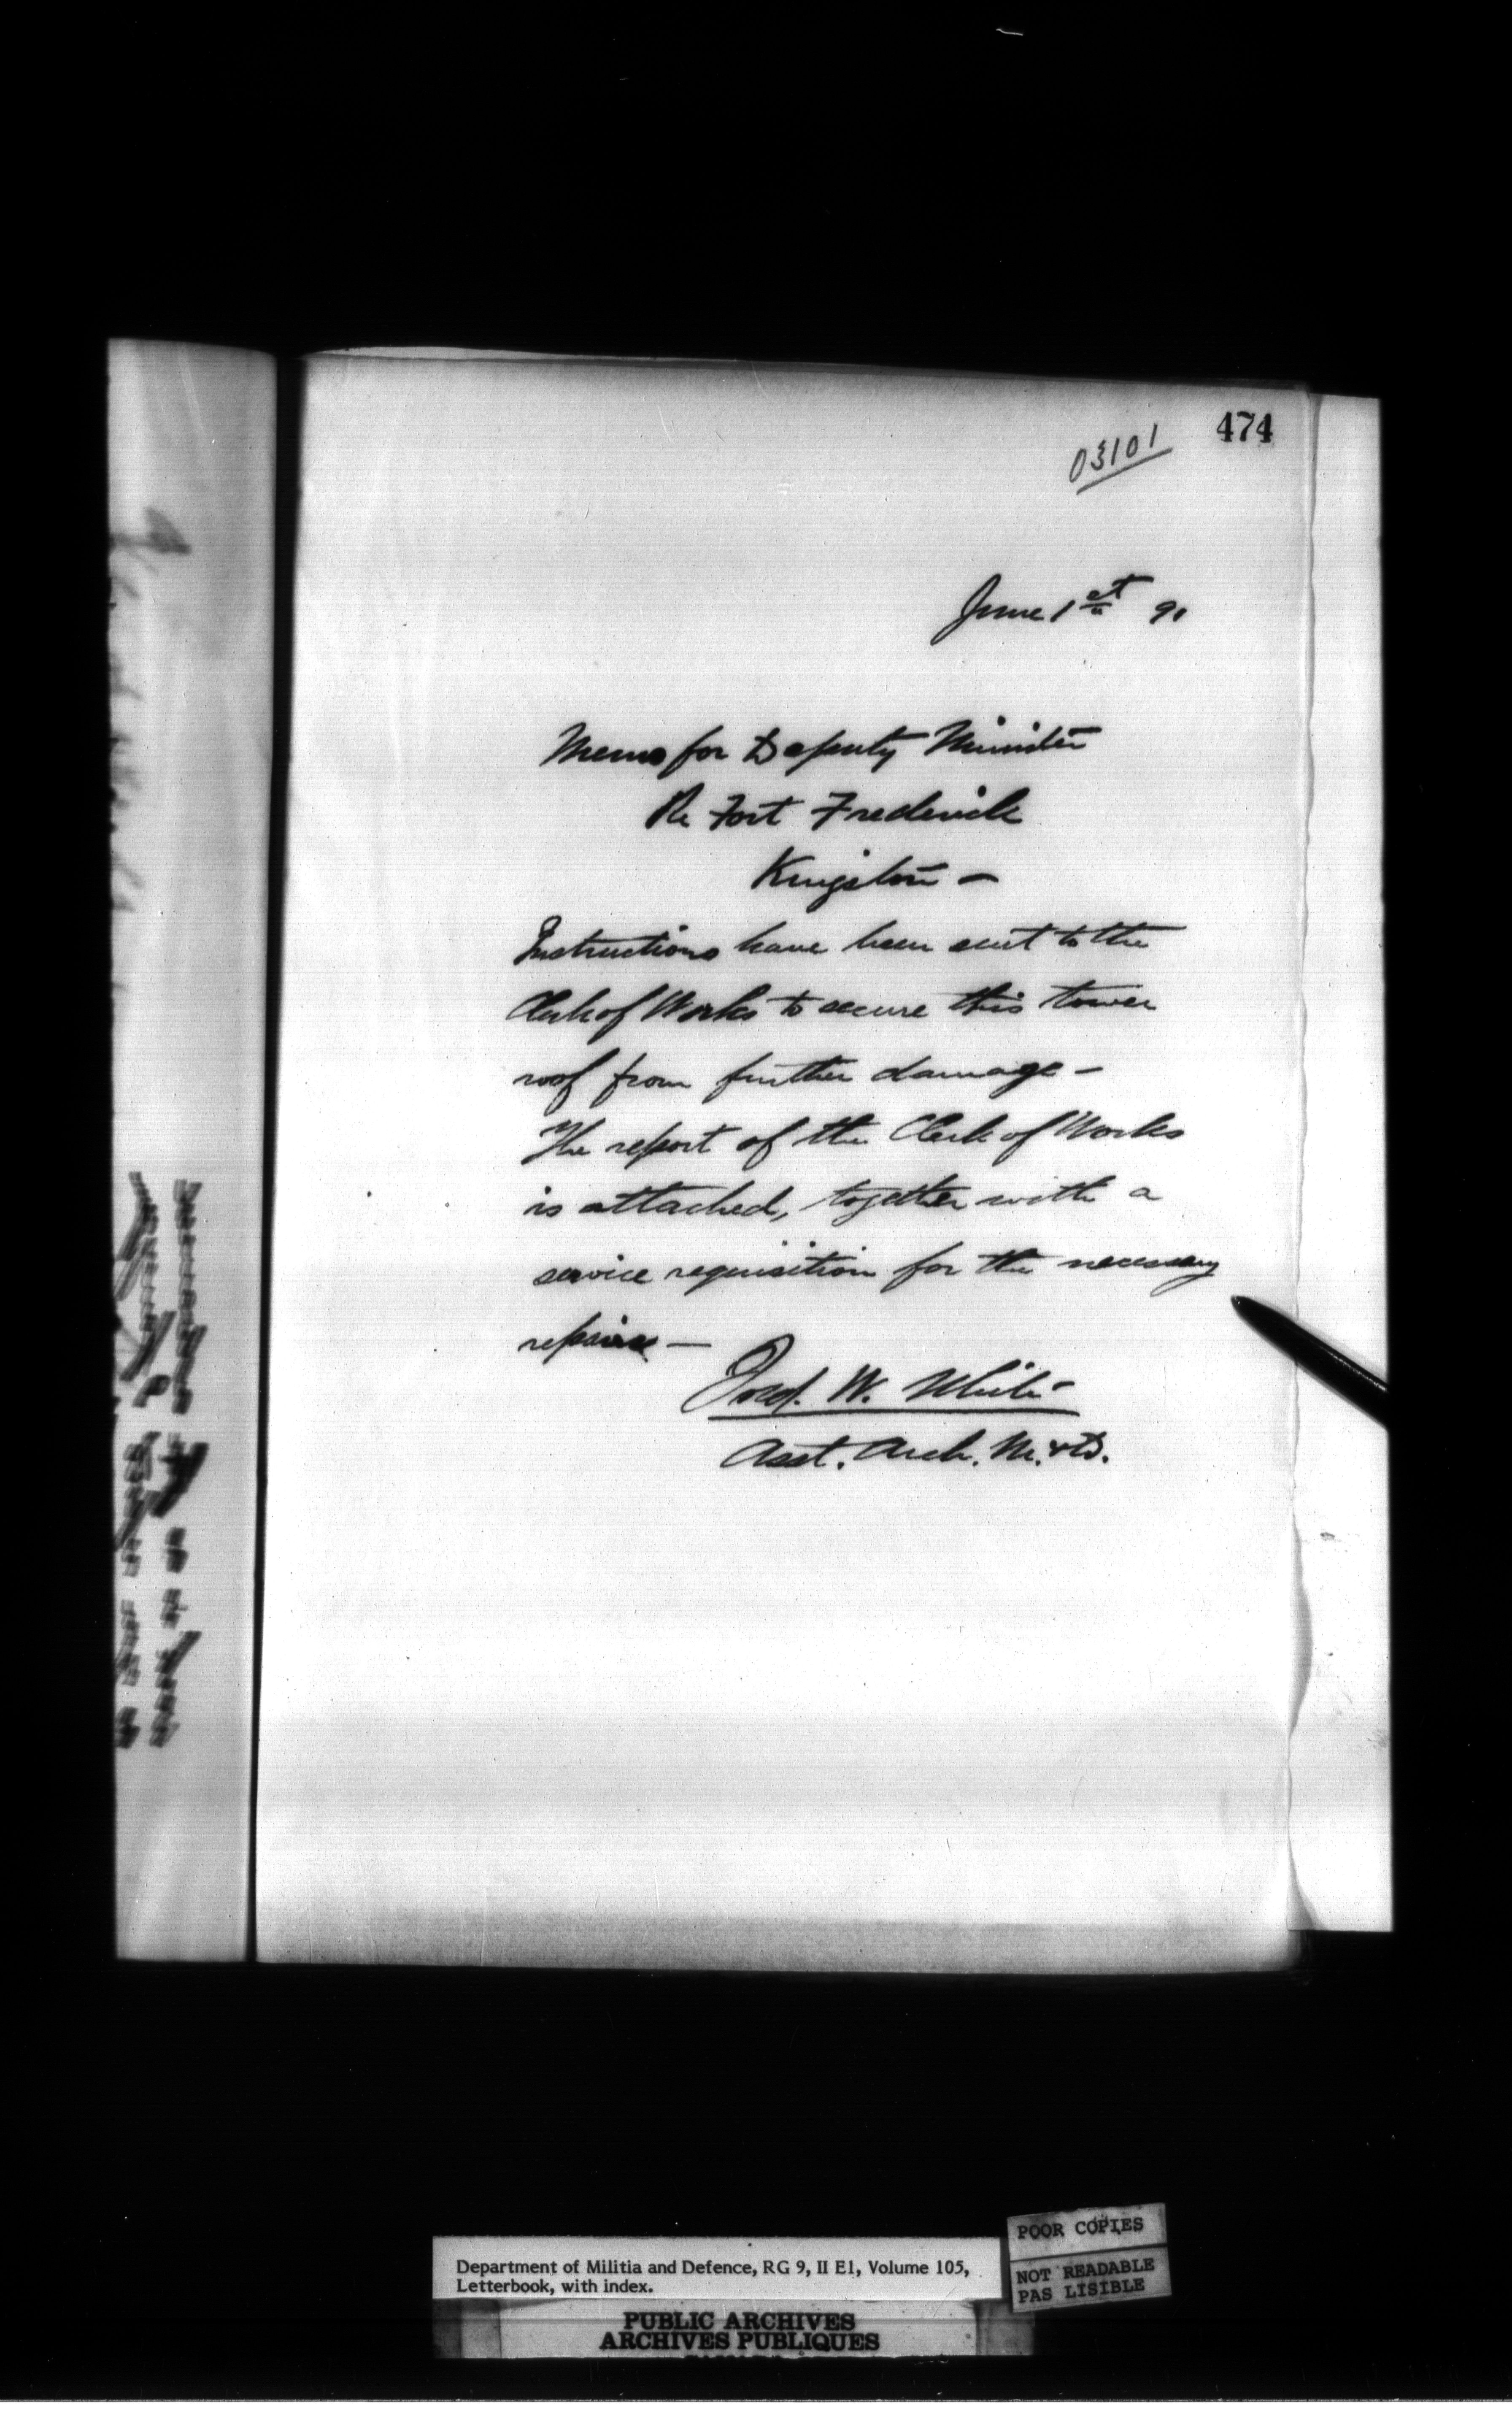 474
03101
June 1st 91
Memo for Deputy Minister
Re Fort Frederick
Kingston —
Instructions have been sent to the
Clerk of Works to secure this tower
roof from further damage —
The report of the Clerk of Works
is attached, together with a
service requisition for the necessary
repairs —
Fred. W. White
Asst. Arch. M. & D.
POOR COPIES
NOT READABLE
PAS LISIBLE
Department of Militia and Defence, RG 9, II E1, Volume 105,
Letterbook, with index.
PUBLIC ARCHIVES
ARCHIVES PUBLIQUES